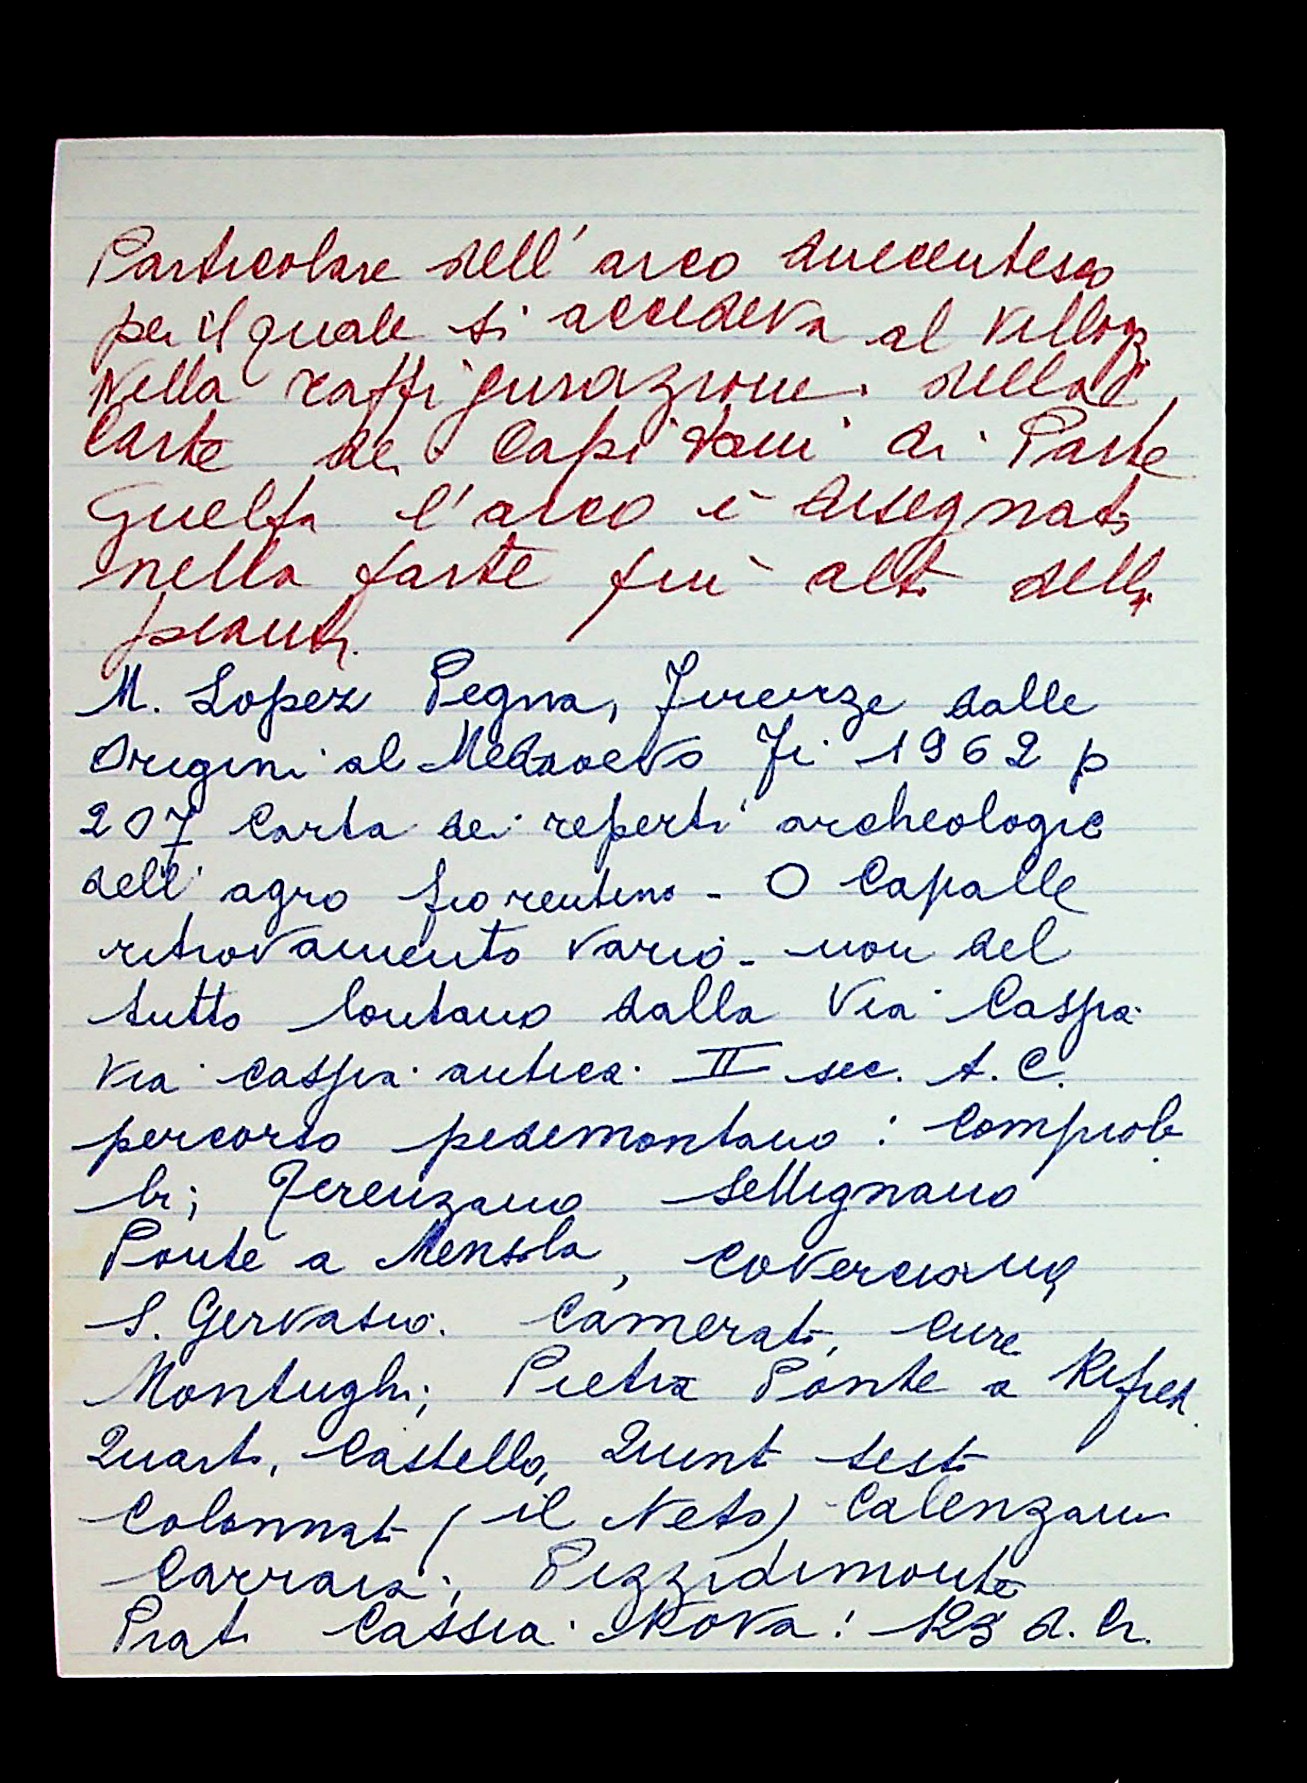 Particolare dell'arco duecentesco
per il quale si accedeva al villag
Nella raffigurazione della
Carte dei Capitani di Parte
Guelfa l'arco è disegnato
nella parte più alta della
pianta.
M. Lopez Pegna, Firenze dalle
Origini al Medioevo Fi 1962 p
207 Carta dei reperti archeologic
dell'agro fiorentino - O Capalle
ritrovamento vario - non del
tutto lontano dalla Via Cassia
Via Cassia antica II sec. A. C.
percorso pedemontano : Comprob
bi; Terenzano Settignano
Ponte a Mensola, Coverciano,
S. Gervasio. Camerata, Cure
Montughi; Pietra Ponte a Rifred.
Quarto, Castello, Quinto Sesto
Colonnata (il Neto) Calenzano
Carraia; Pizzidimonte
Prato Cassia Nova: 123 d. Cr.